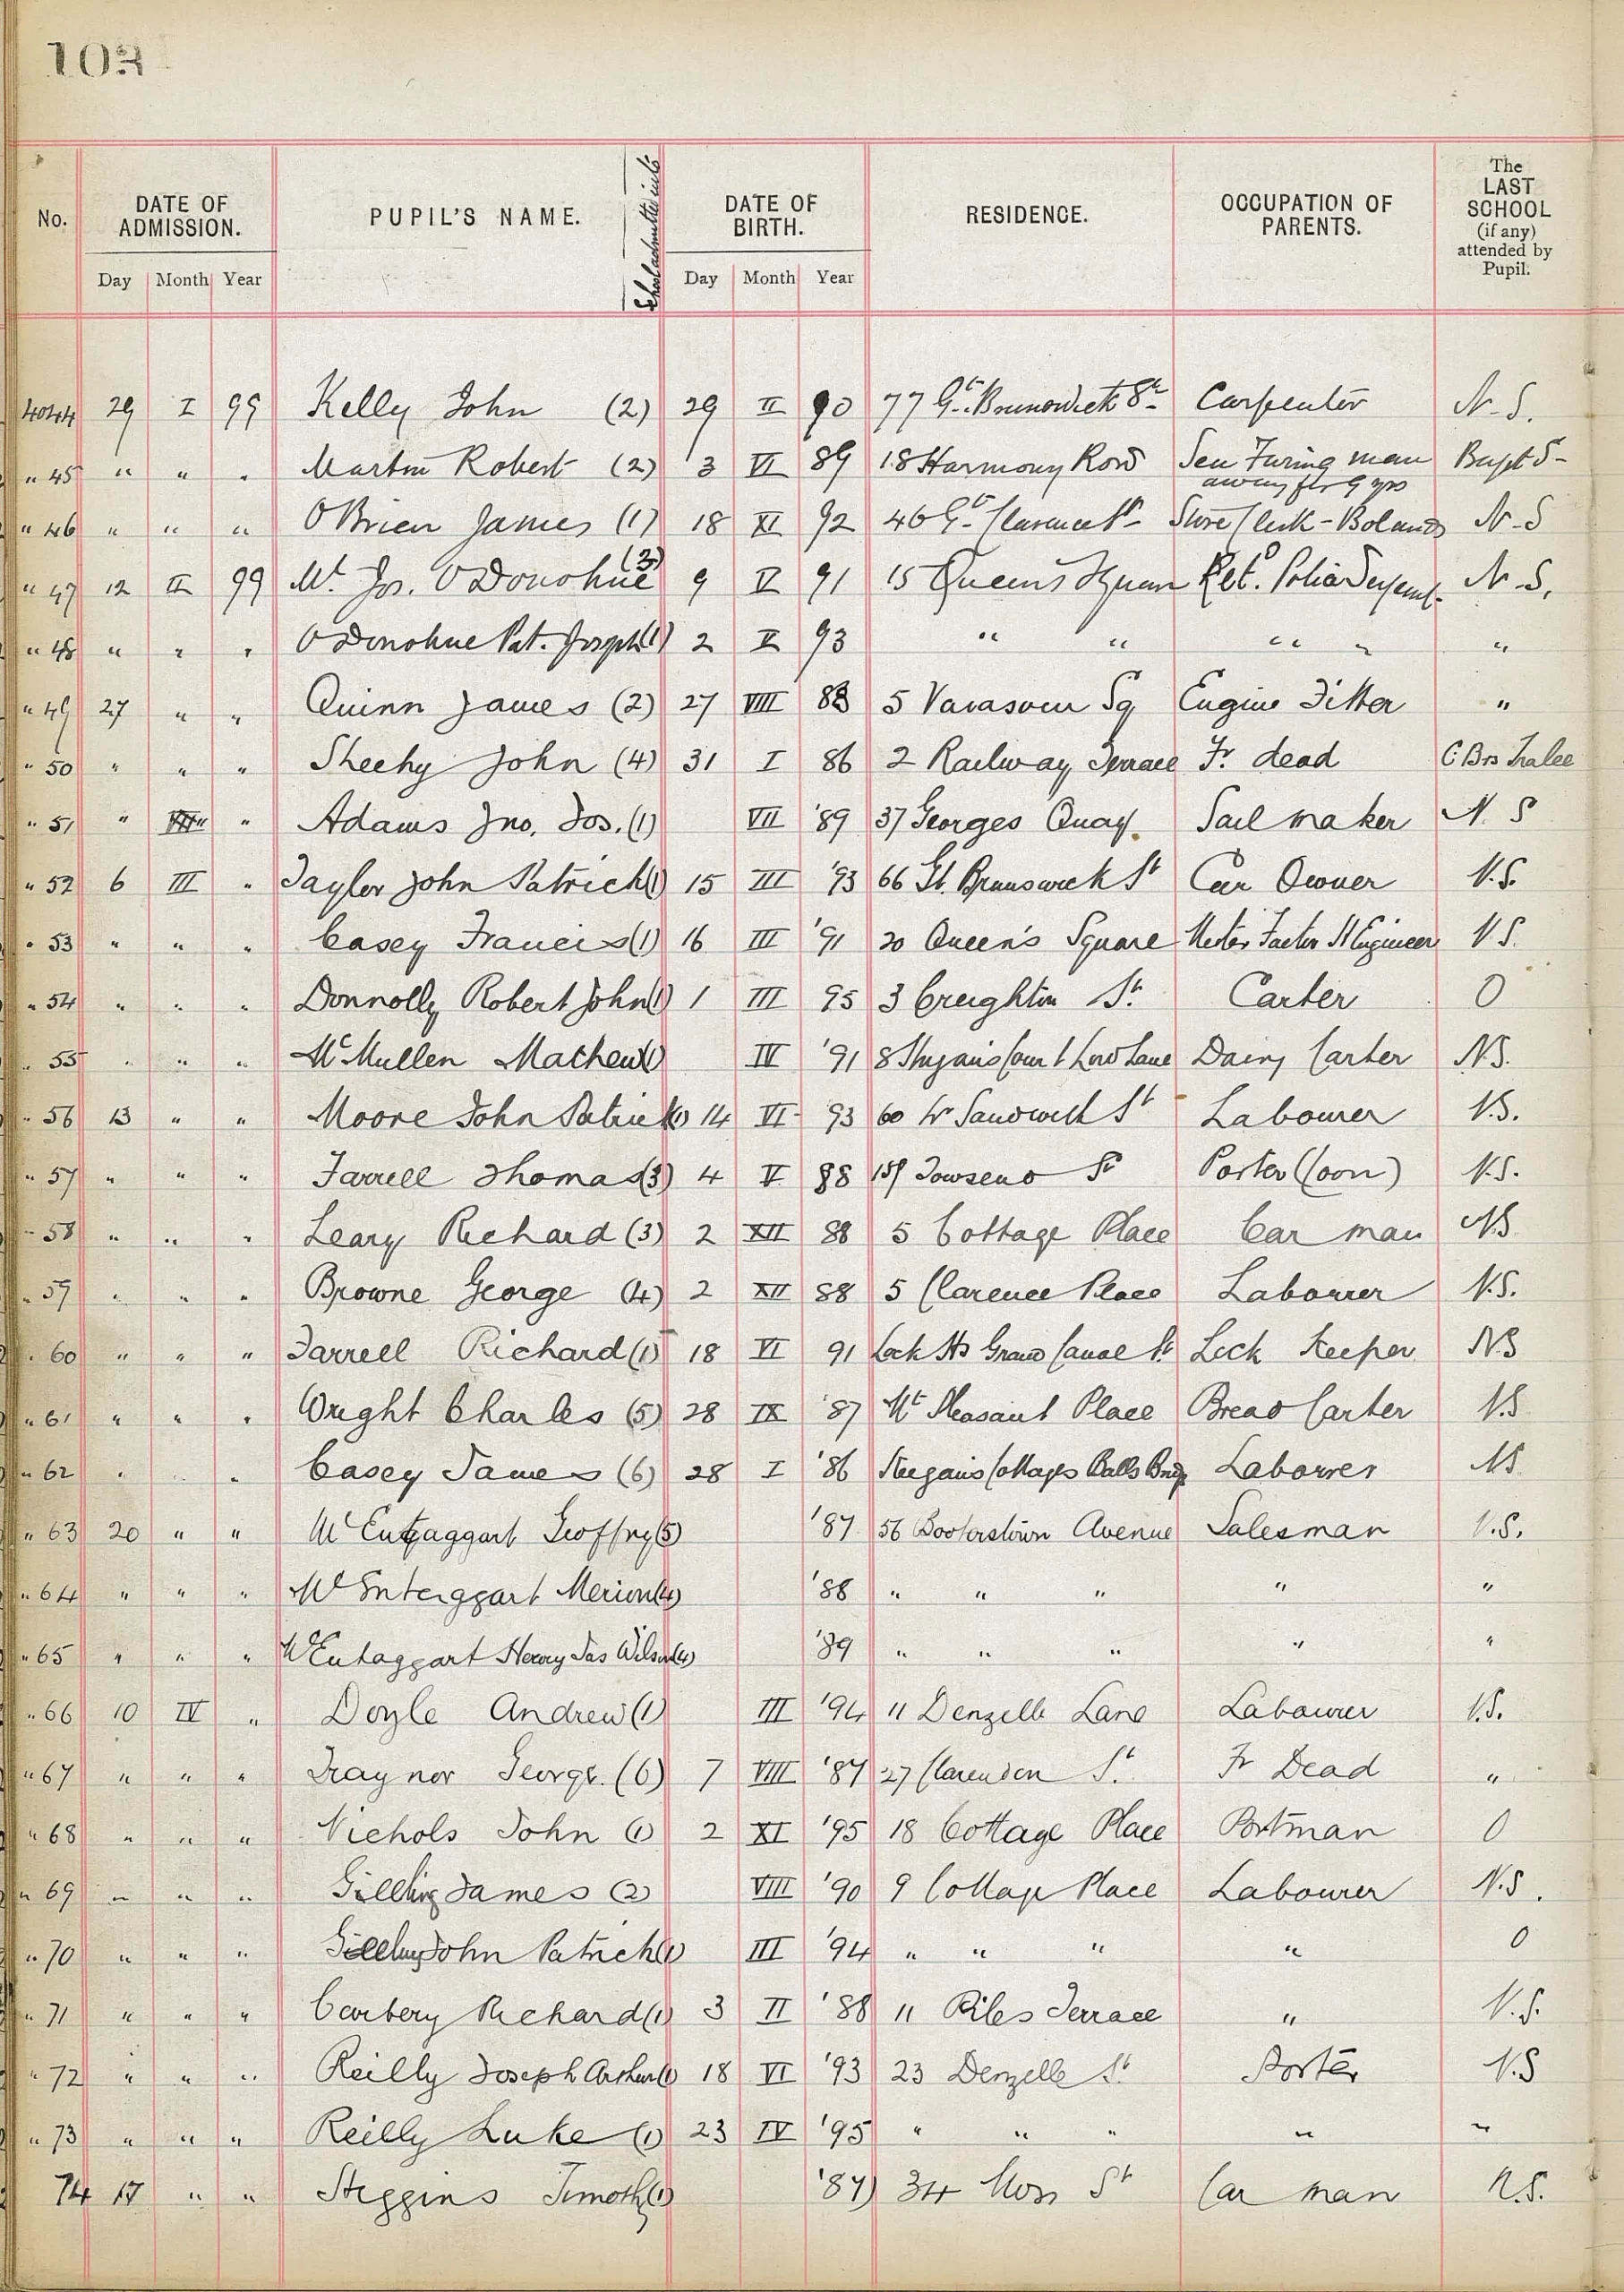 103
No. DATE OF ADMISSION. PUPIL'S NAME. School admitted into DATE OF BIRTH. RESIDENCE. OCCUPATION OF PARENTS. The LAST SCHOOL (if any) attended by Pupil.
Day Month Year Day Month Year
4044 29 I 99 Kelly John (2) 29 II 90 77 Gt. Brunswick St. Carpenter N.S.
" 45 " " " Martin Robert (2) 3 VI 89 18 Harmony Row Sea Faring man Bapt S-
away for 9 yrs
" 46 " " " O'Brien James (1) 18 XI 92 46 Gt. Clarence St. Store Clerk - Bolands N-S
" 47 12 II 99 Jos. O'Donohue (3) 9 V 91 15 Queen's Square Retd. Police Sergeant N-S.
" 48 " " " O'Donohue Pat. Joseph (1) 2 V 93 " " " " "
" 49 27 " " Quinn James (2) 27 VIII 88 5 Vavasour Sq Engine Fitter "
" 50 " " " Sheehy John (4) 31 I 86 2 Railway Terrace Fr. dead C Brs Tralee
" 51 " " " Adams Jno. Jos. (1) VII '89 37 Georges Quay Sail maker N. S
" 52 6 III " Taylor John Patrick (1) 15 III '93 66 Gt. Brunswick St Car Owner N.S.
" 53 " " " Casey Francis (1) 16 III '91 20 Queen's Square Engineer N S.
" 54 " " " Donnolly Robert John (1) 1 III 95 3 Creighton St. Carter O
" 55 " " " McMullen Mathew (1) IV '91 8 Court Low Lane Dairy Carter N.S.
" 56 13 " " Moore John Patrick (1) 14 VI 93 60 Lr Sandwith St Labourer N.S.
" 57 " " " Farrell Thomas (3) 4 V 88 159 Townsend St Porter N.S.
" 58 " " " Leary Richard (3) 2 XII 88 5 Cottage Place Car man N.S
" 59 " " " Browne George (4) 2 XII 88 5 Clarence Place Labourer N.S.
" 60 " " " Farrell Richard (1) 18 VI 91 Lock Hs Grand Canal St. Lock Keeper N.S
" 61 " " " Wright Charles (5) 28 IX '87 Mt Pleasant Place Bread Carter N.S
" 62 " " " Casey James (6) 28 I '86 Keegans Cottages Balls Bridge Labourer N.S
" 63 20 " " McEntaggart Geoffry (5) '87 56 Booterstown Avenue Salesman N.S.
" 64 " " " McEntaggart Merion (4) '88 " " " " "
" 65 " " " McEntaggart Henry Jas Wilson (4) '89 " " " " "
" 66 10 IV " Doyle Andrew (1) III '94 11 Denzelle Lane Labourer N.S.
" 67 " " " Traynor George. (6) 7 VIII '87 27 Clarendon St. Fr Dead "
" 68 " " " Nichols John (1) 2 XI '95 18 Cottage Place Portman O
" 69 " " " James (2) VIII '90 9 Cottage Place Labourer N.S.
" 70 " " " John Patrick (1) III '94 " " " " O
" 71 " " " Carbery Richard (1) 3 II '88 11 Piles Terrace " N.S.
" 72 " " " Reilly Joseph Arthur (1) 18 VI '93 23 Denzelle St. Porter N.S
" 73 " " " Reilly Luke (1) 23 IV '95 " " " " "
74 17 " " Higgins Timothy (1) '87 34 Moss St Car man N.S.